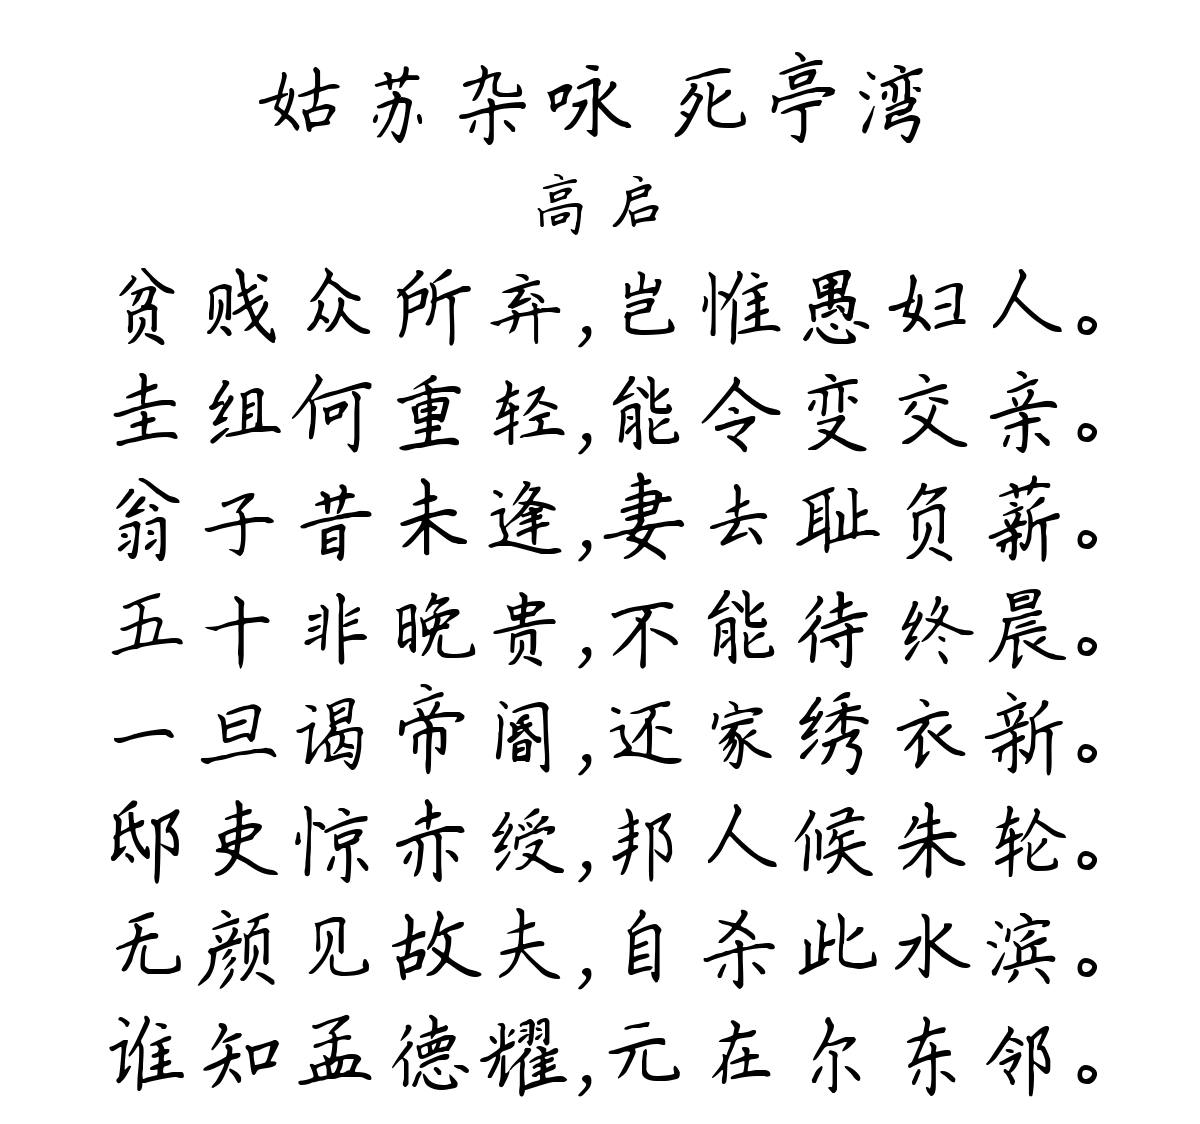 姑苏杂咏 死亭湾
高启
贫贱众所弃,岂惟愚妇人。
圭组何重轻,能令变交亲。
翁子昔未逢,妻去耻负薪。
五十非晚贵,不能待终晨。
一旦谒帝阍,还家绣衣新。
邸吏惊赤绶,邦人候朱轮。
无颜见故夫,自杀此水滨。
谁知孟德耀,元在尔东邻。